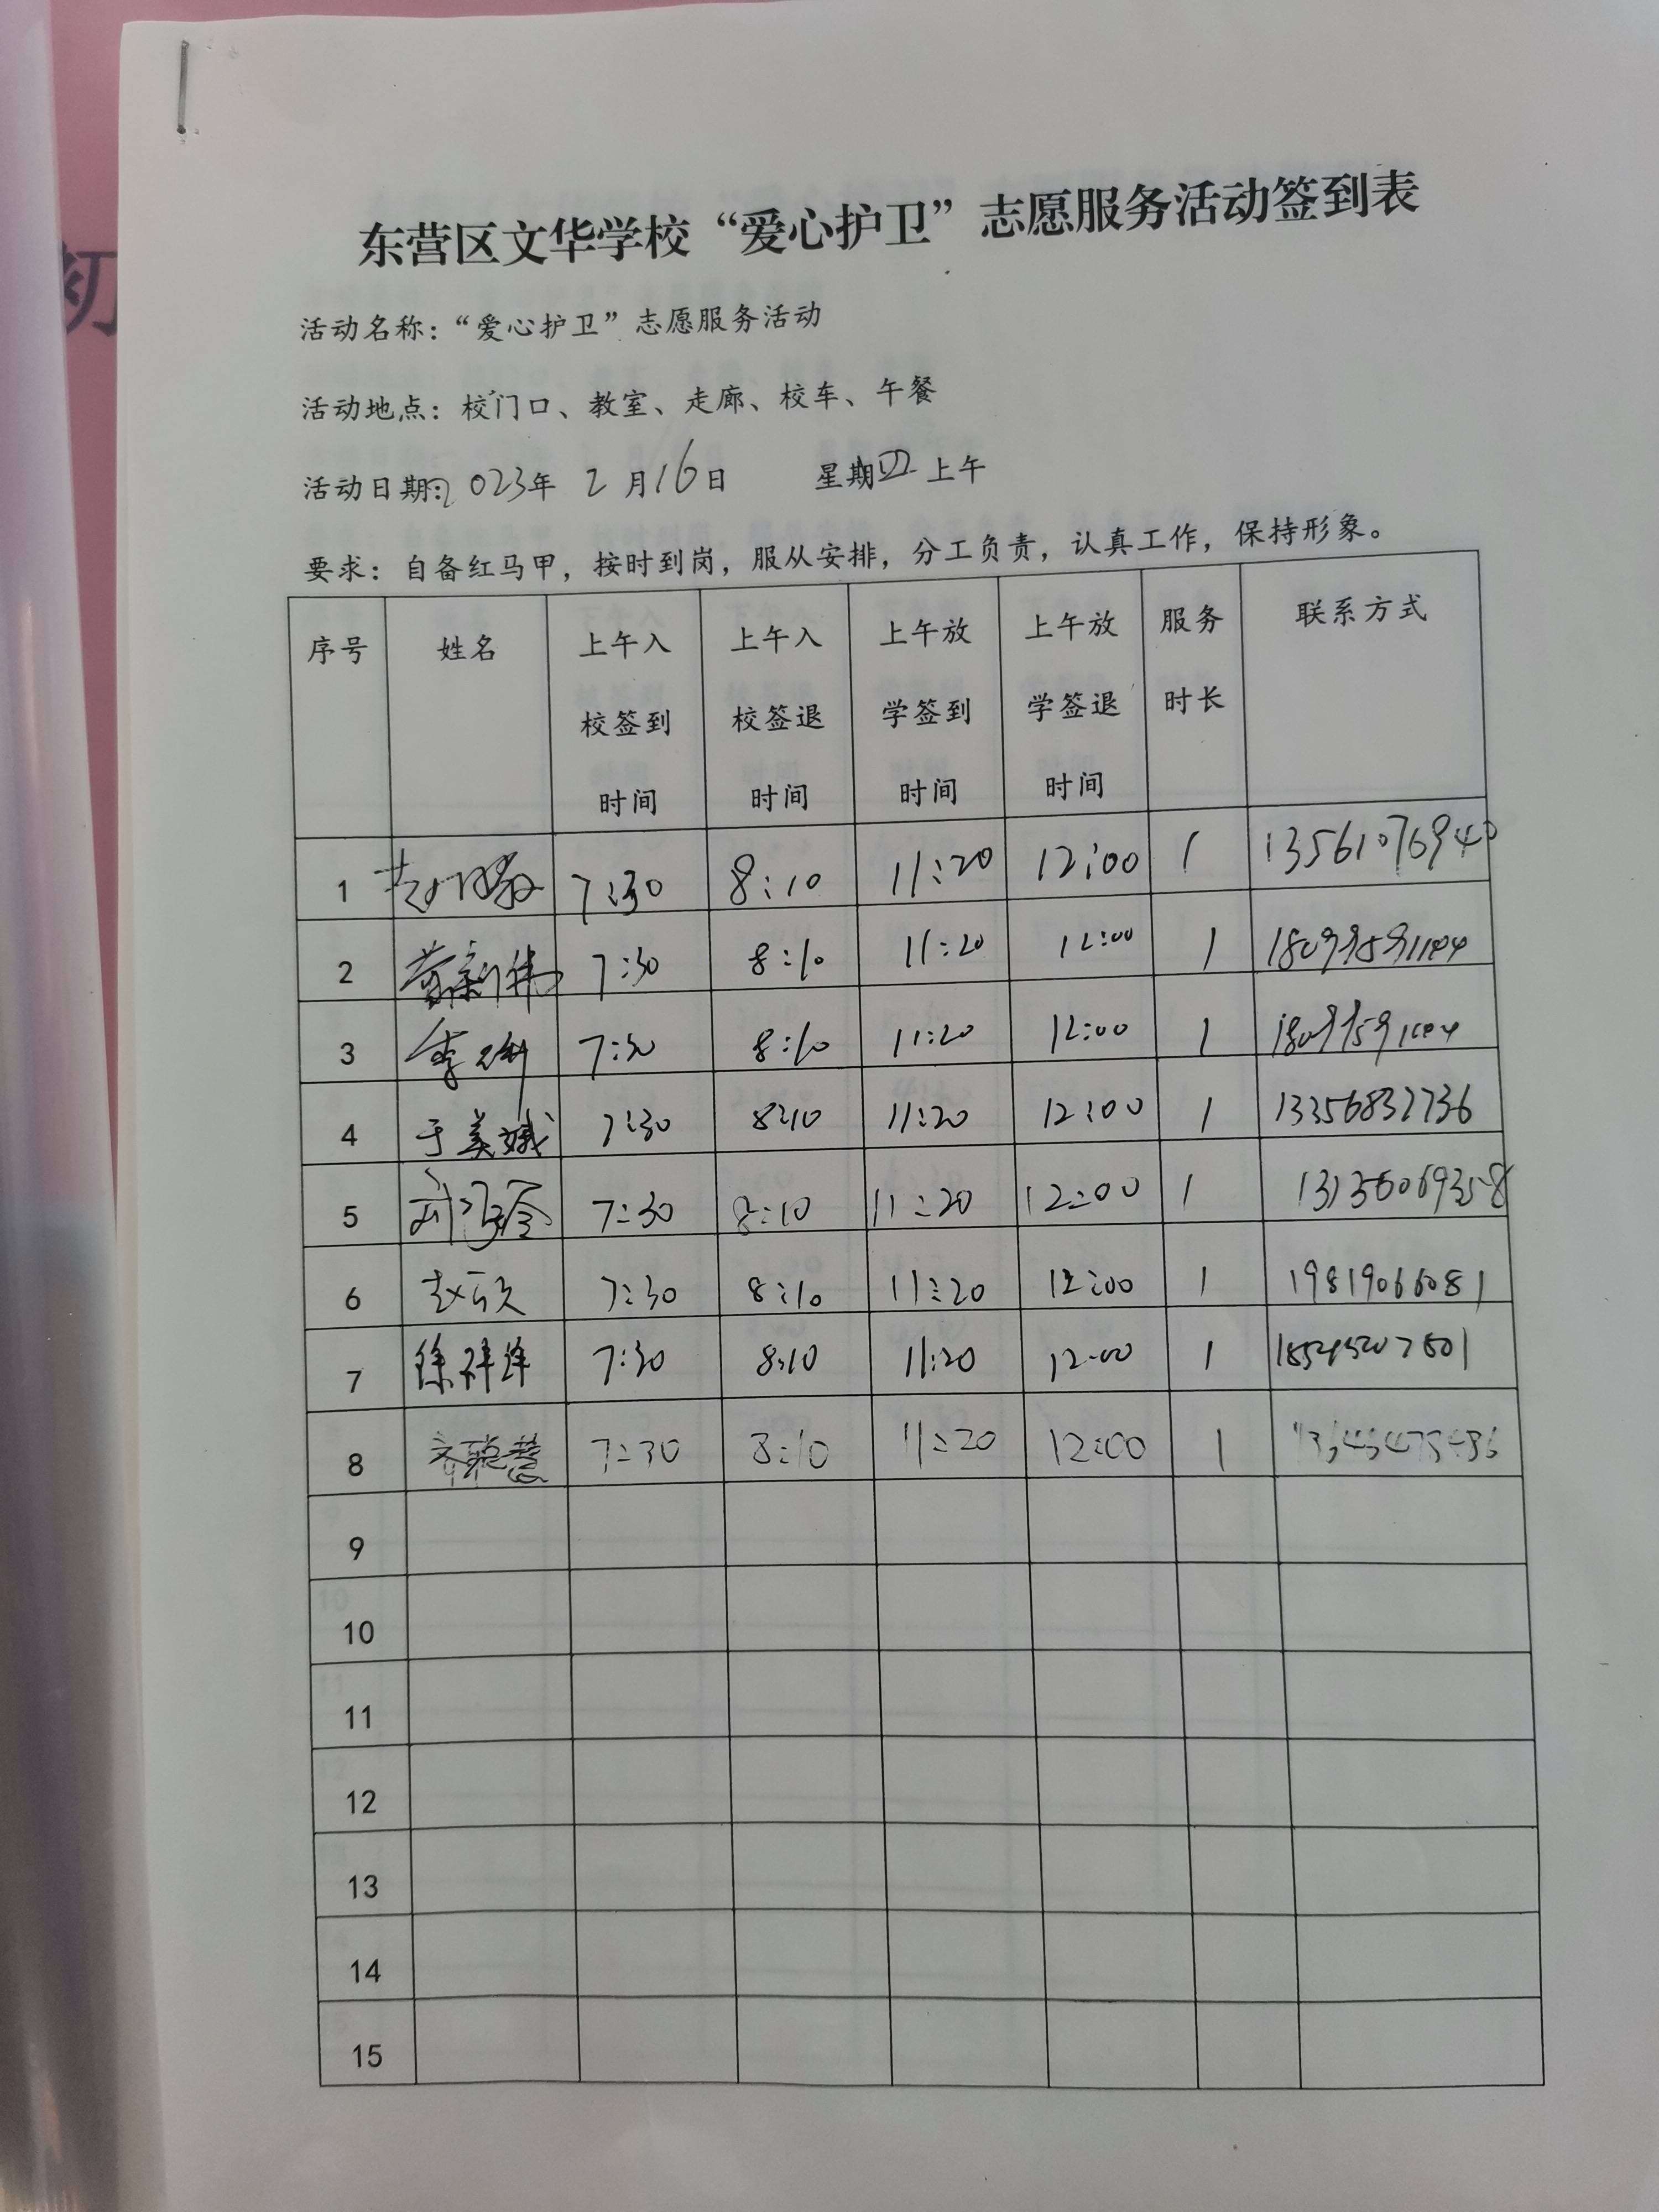 初
东营区文华学校“爱心护卫”志愿服务活动签到表
活动名称：“爱心护卫”志愿服务活动
活动地点：校门口、教室、走廊、校车、午餐
活动日期：2023年 2月16日 星期四上午
要求：自备红马甲，按时到岗，服从安排，分工负责，认真工作，保持形象。
序号 姓名 上午入校签到时间 上午入校签退时间 上午放学签到时间 上午放学签退时间 服务时长 联系方式
1 7:30 8:10 11:20 12:00 1 13561076940
2 7:30 8:10 11:20 12:00 1
3 7:30 8:10 11:20 12:00 1
4 于美娥 7:30 8:10 11:20 12:00 1 13356832736
5 7:30 8:10 11:20 12:00 1
6 7:30 8:10 11:20 12:00 1 19819066081
7 徐祥泽 7:30 8:10 11:20 12:00 1
8 7:30 8:10 11:20 12:00 1
9
10
11
12
13
14
15